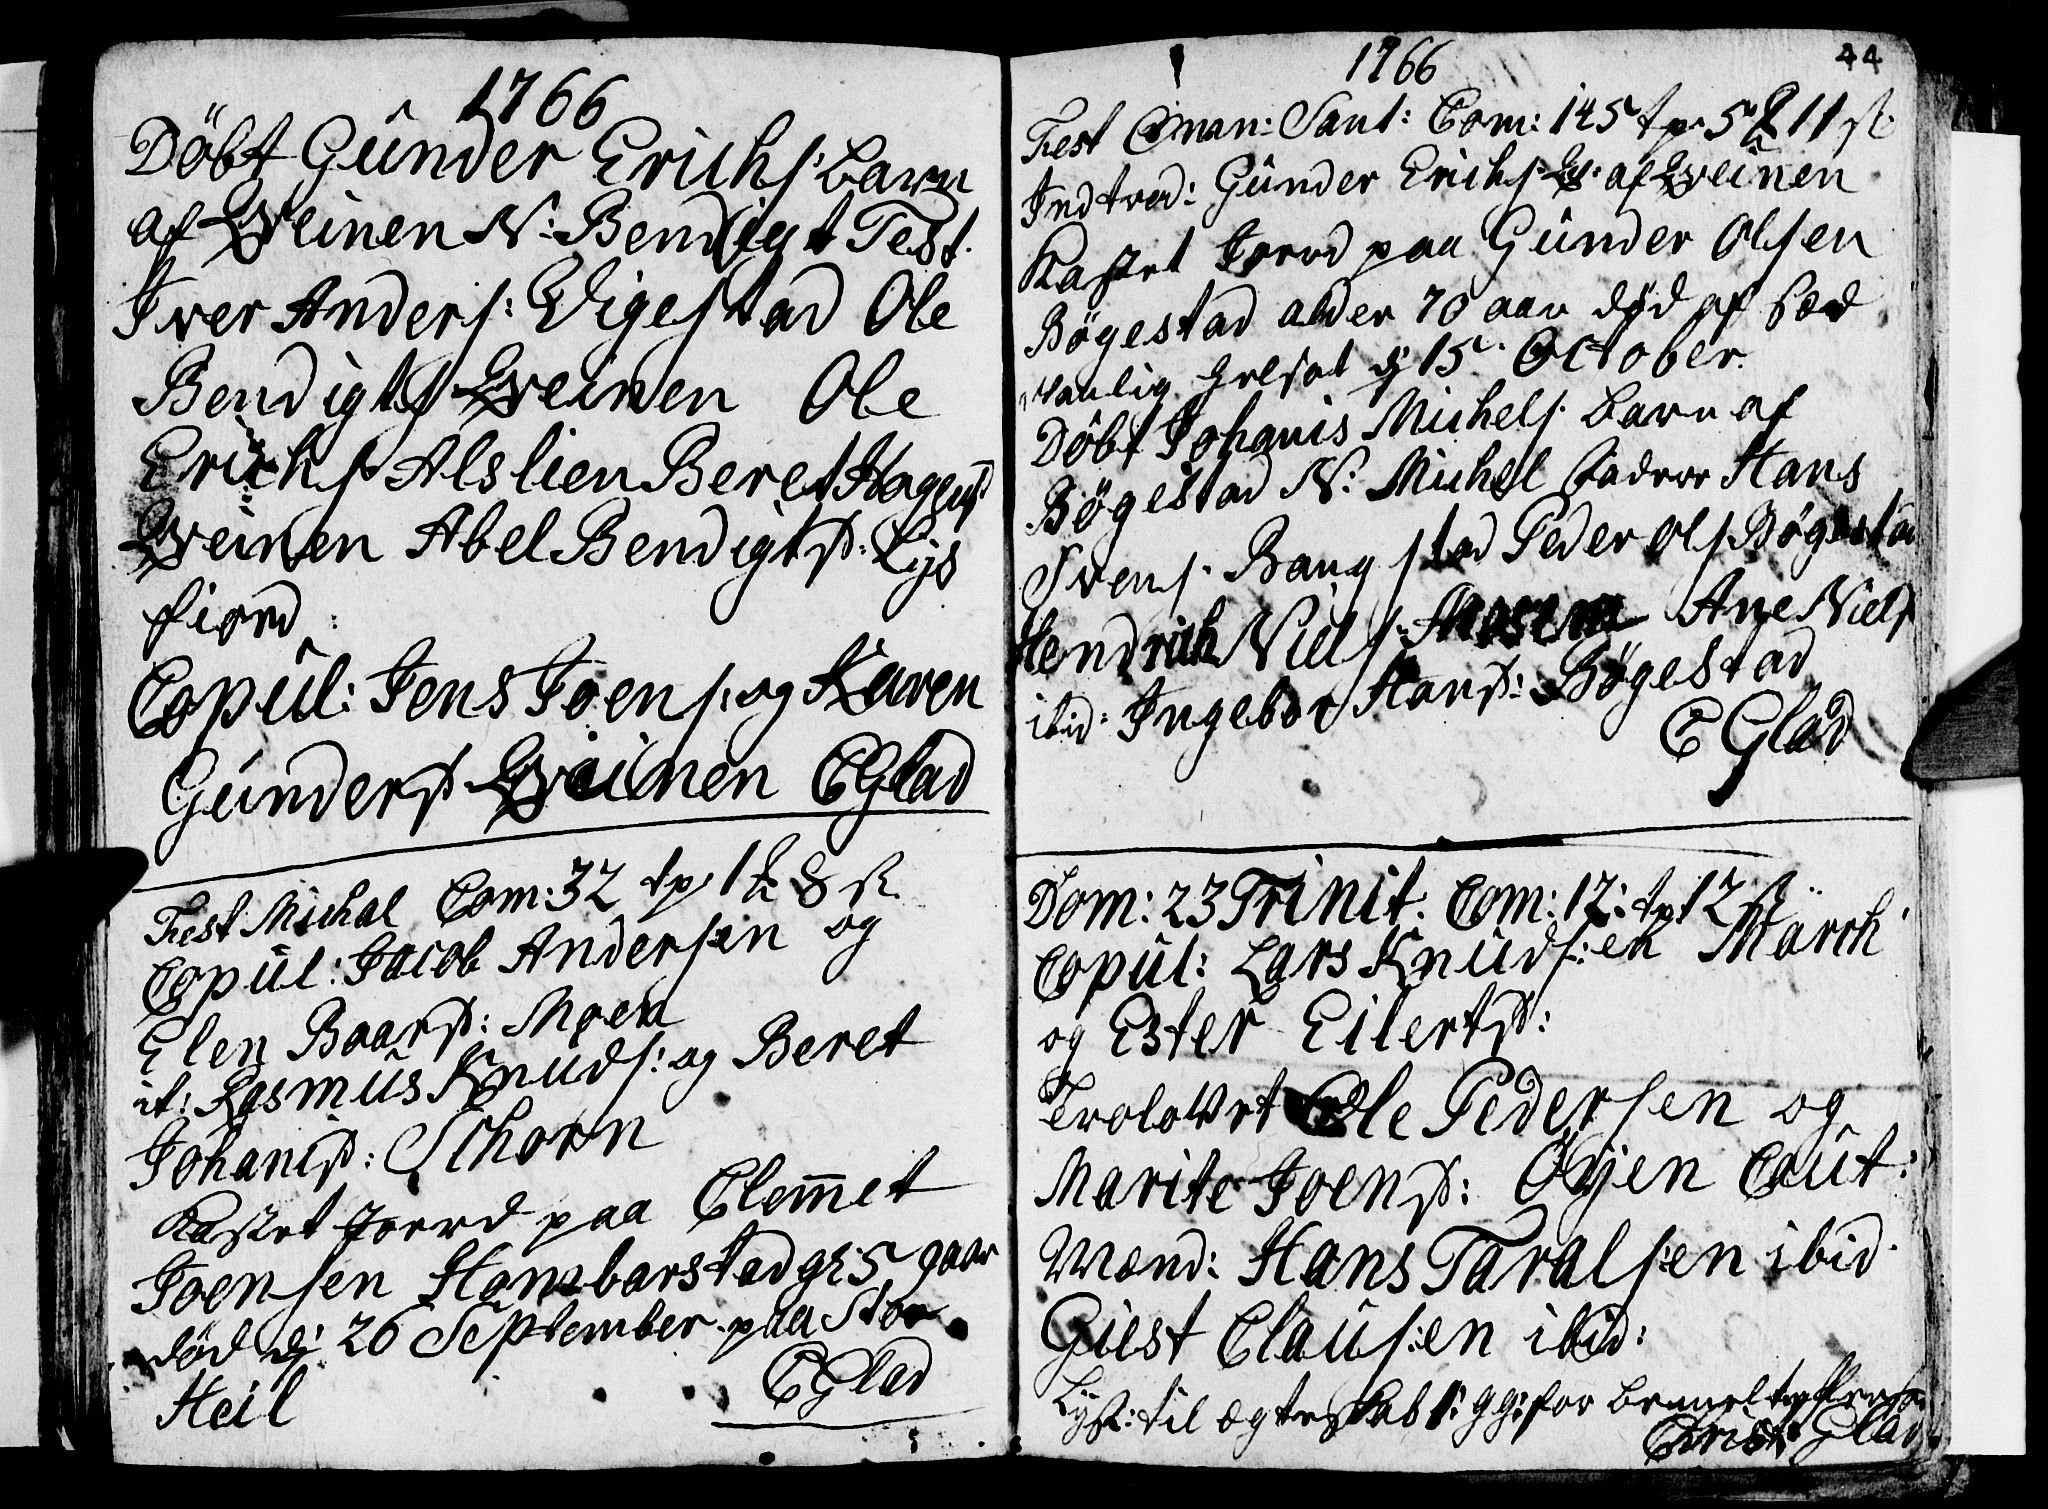 1766
Döbt Gûnder Erichs: barn
af Qveinen N: Bendigt Test.
Iver Anders: Vigestad Ole
Bendigts Qveinen Ole
Erichs Alslien Beret Hagens
Qveinen Abel Bendigtsd: Lys
fiord:
Copûl: Jens Joens: og Karen
Gûndersd Qveinen CGlad
Fest Michal Com: 32 tp. 1 8 s.
Copûl: Jacob Andersen og
Elen Baarsd: Moen
it: Rasmûs Knuds: og Beret
Johanisd: Schorn
Kastet Jord paa Clem̄et
Joensen Hambarstad gl: 5 gaar
död dj 26 September paa Stor
Heil CGlad
44
1766
Fest Oman: Sant: Com: 145 tp. 5 11 s
Indtred: Gûnder Erichs af Qveinen
Kastet Jord paa Gûnder Olsen
Bögestad alder 70 aar död af
dj 15. October.
Döbt Johanis Michels. barn af
Bögestad N: Michel fadrer Hans
Svens. Bangstad Peder Ols Bögestad
Hendrich Niels: Ane Niels
ibid: Ingebor Hansd: Bögestad
C Glad
Dom: 23 Trinit. Com: 12: tp 12 s
Copûl: Lars Knûds:en March
og Ester Eilertsd:
Trolovet Ole Pedersen og
Marite Joensd: Öyen Caût:
Mænd: Hans Taralsen ibid.
Giest Claûs:en ibid:
Lyst: til ægteskab 1: gg: for
Christ: Glad